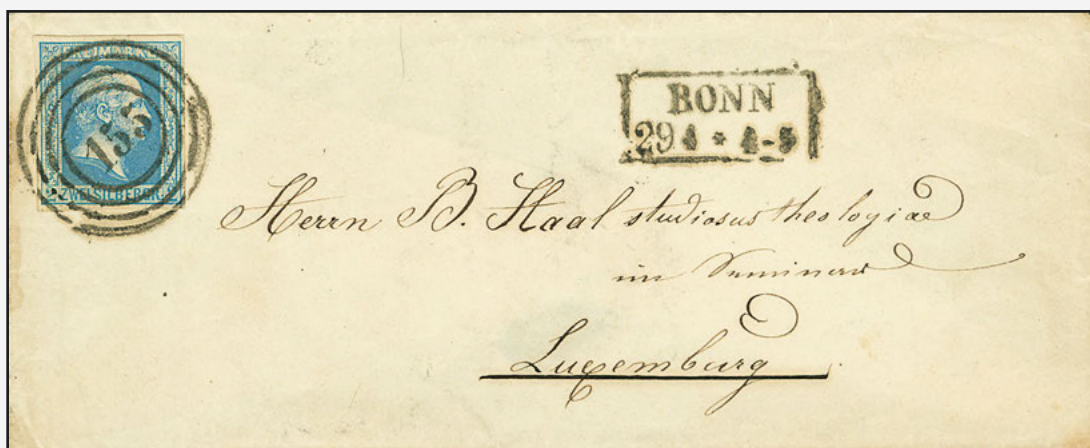 FREIMARKE
155
2 ZWEI SILBERGR. 2
BONN
29 4 * 4-5
Herrn B. Haal studiosus theologiae
im Seminar
Luxemburg